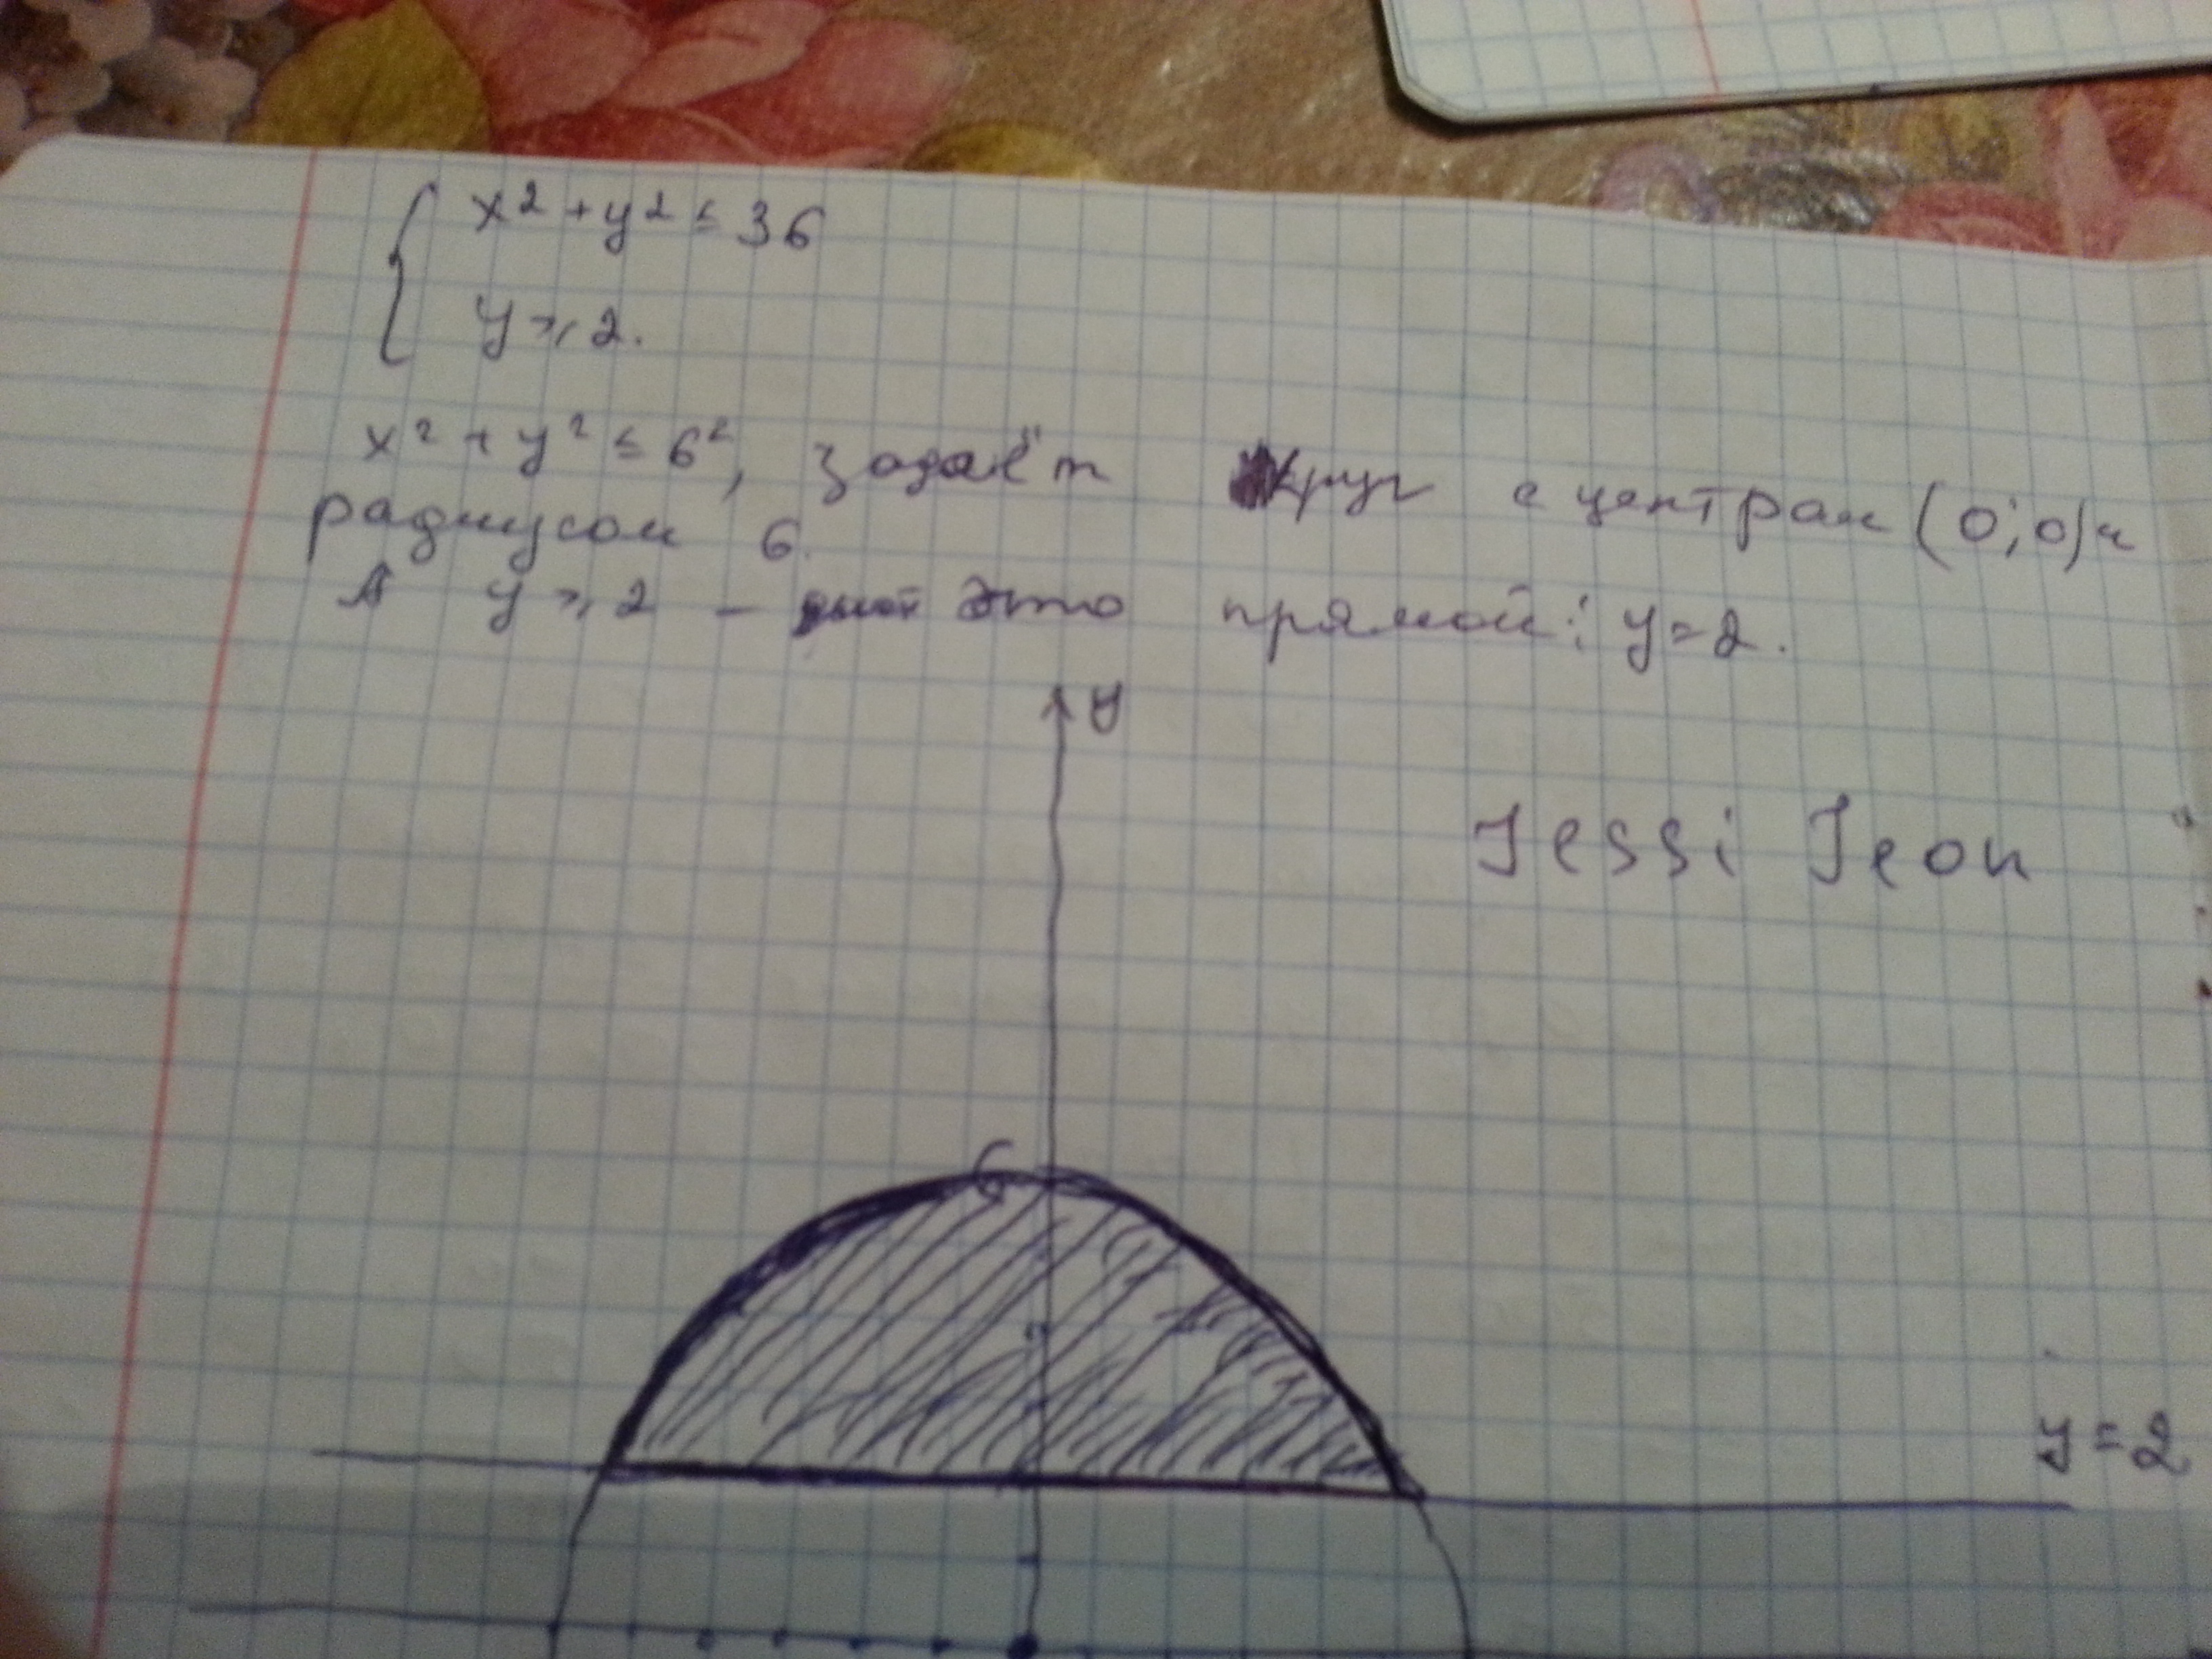 x² + y² ≤ 36
y ≥ 2.
x² + y² ≤ 6², задаёт круг с центром (0;0) и
радиусом 6.
А y ≥ 2 – это прямой: y = 2.
y
Jessi Jeon
6
y = 2